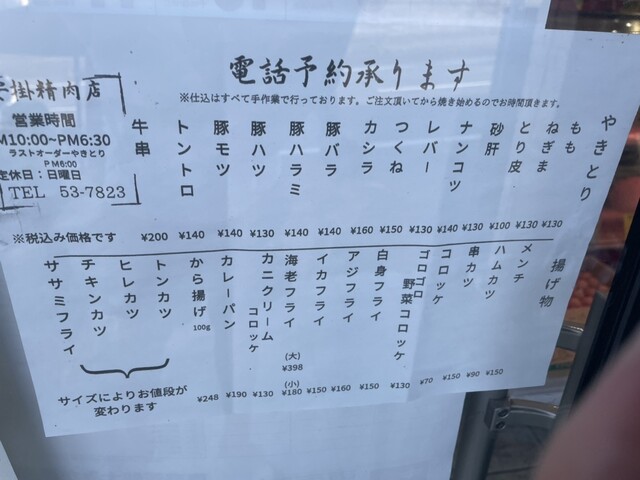 電話予約承ります
※仕込はすべて手作業で行っております。ご注文頂いてから焼き始めるのでお時間頂きます。
掛精肉店
営業時間
M10:00~PM6:30
ラストオーダーやきとり
PM6:00
定休日：日曜日
TEL 53-7823
やきとり
もも ¥130
ねぎま ¥130
とり皮 ¥100
砂肝 ¥130
ナンコツ ¥140
レバー ¥130
つくね ¥150
カシラ ¥160
豚バラ ¥140
豚ハラミ ¥140
豚ハツ ¥130
豚モツ ¥140
トントロ ¥140
牛串 ¥200
※税込み価格です
揚げ物
メンチ ¥150
ハムカツ ¥90
串カツ ¥150
コロッケ ¥70
ゴロゴロ
野菜コロッケ ¥130
白身フライ ¥150
アジフライ ¥160
イカフライ ¥150
海老フライ
(大)
¥398
(小)
¥180
カニクリーム
コロッケ ¥130
カレーパン ¥190
から揚げ 100g ¥248
トンカツ
ヒレカツ
チキンカツ
ササミフライ
サイズによりお値段が
変わります